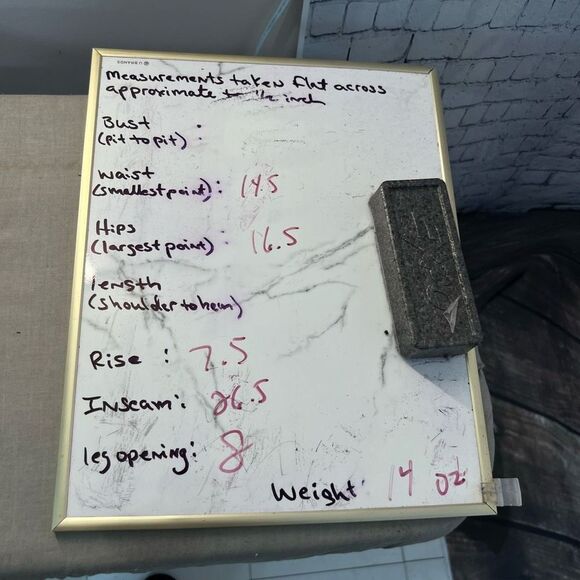 U BRANDS
Measurements taken flat across
approximate to 1/2 inch
Bust :
(pit to pit)
Waist
(smallest point): 14.5
Hips
(largest point) 16.5
length
(shoulder to hem)
Rise : 7.5
Inseam: 26.5
leg opening: 8
Weight 14 oz